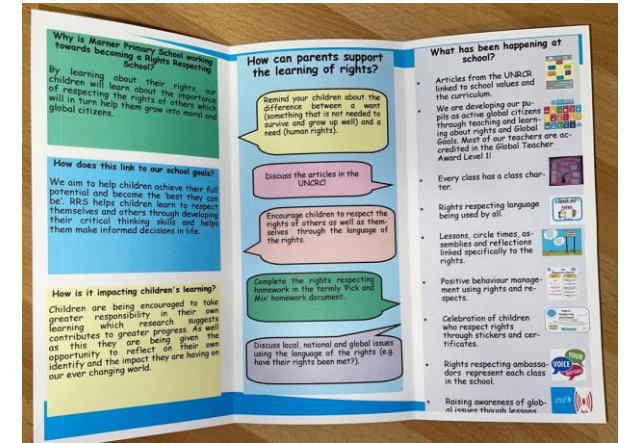 Why is Marner Primary School working
towards becoming a Rights Respecting
School?
By learning about their rights, our
children will learn about the importance
of respecting the rights of others which
will in turn help them grow into moral and
global citizens.
How does this link to our school goals?
We aim to help children achieve their full
potential and become the 'best they can
be'. RRS helps children learn to respect
themselves and others through developing
their critical thinking skills and helps
them make informed decisions in life.
How is it impacting children's learning?
Children are being encouraged to take
greater responsibility in their own
learning which research suggests
contributes to greater progress. As well
as this they are being given the
opportunity to reflect on their own
identify and the impact they are having on
our ever changing world.
How can parents support
the learning of rights?
Remind your children about the
difference between a want
(something that is not needed to
survive and grow up well) and a
need (human rights).
Discuss the articles in the
UNCRC!
Encourage children to respect the
rights of others as well as them-
selves through the language of
the rights.
Complete the rights respecting
homework in the termly 'Pick and
Mix' homework document.
Discuss local, national and global issues
using the language of the rights (e.g.
have their rights been met?).
What has been happening at
school?
Articles from the UNRCR
linked to school values and
the curriculum.
We are developing our pu-
pils as active global citizens
through teaching and learn-
ing about rights and Global
Goals. Most of our teachers are ac-
credited in the Global Teacher
Award Level 1!
Every class has a class char-
ter.
Rights respecting language
being used by all.
Lessons, circle times, as-
semblies and reflections
linked specifically to the
rights.
Positive behaviour manage-
ment using rights and re-
spects.
Celebration of children
who respect rights
through stickers and cer-
tificates.
Rights respecting ambassa-
dors represent each class
in the school.
YOUR
VOICE
MATTERS
Raising awareness of glob-
al issues though lessons